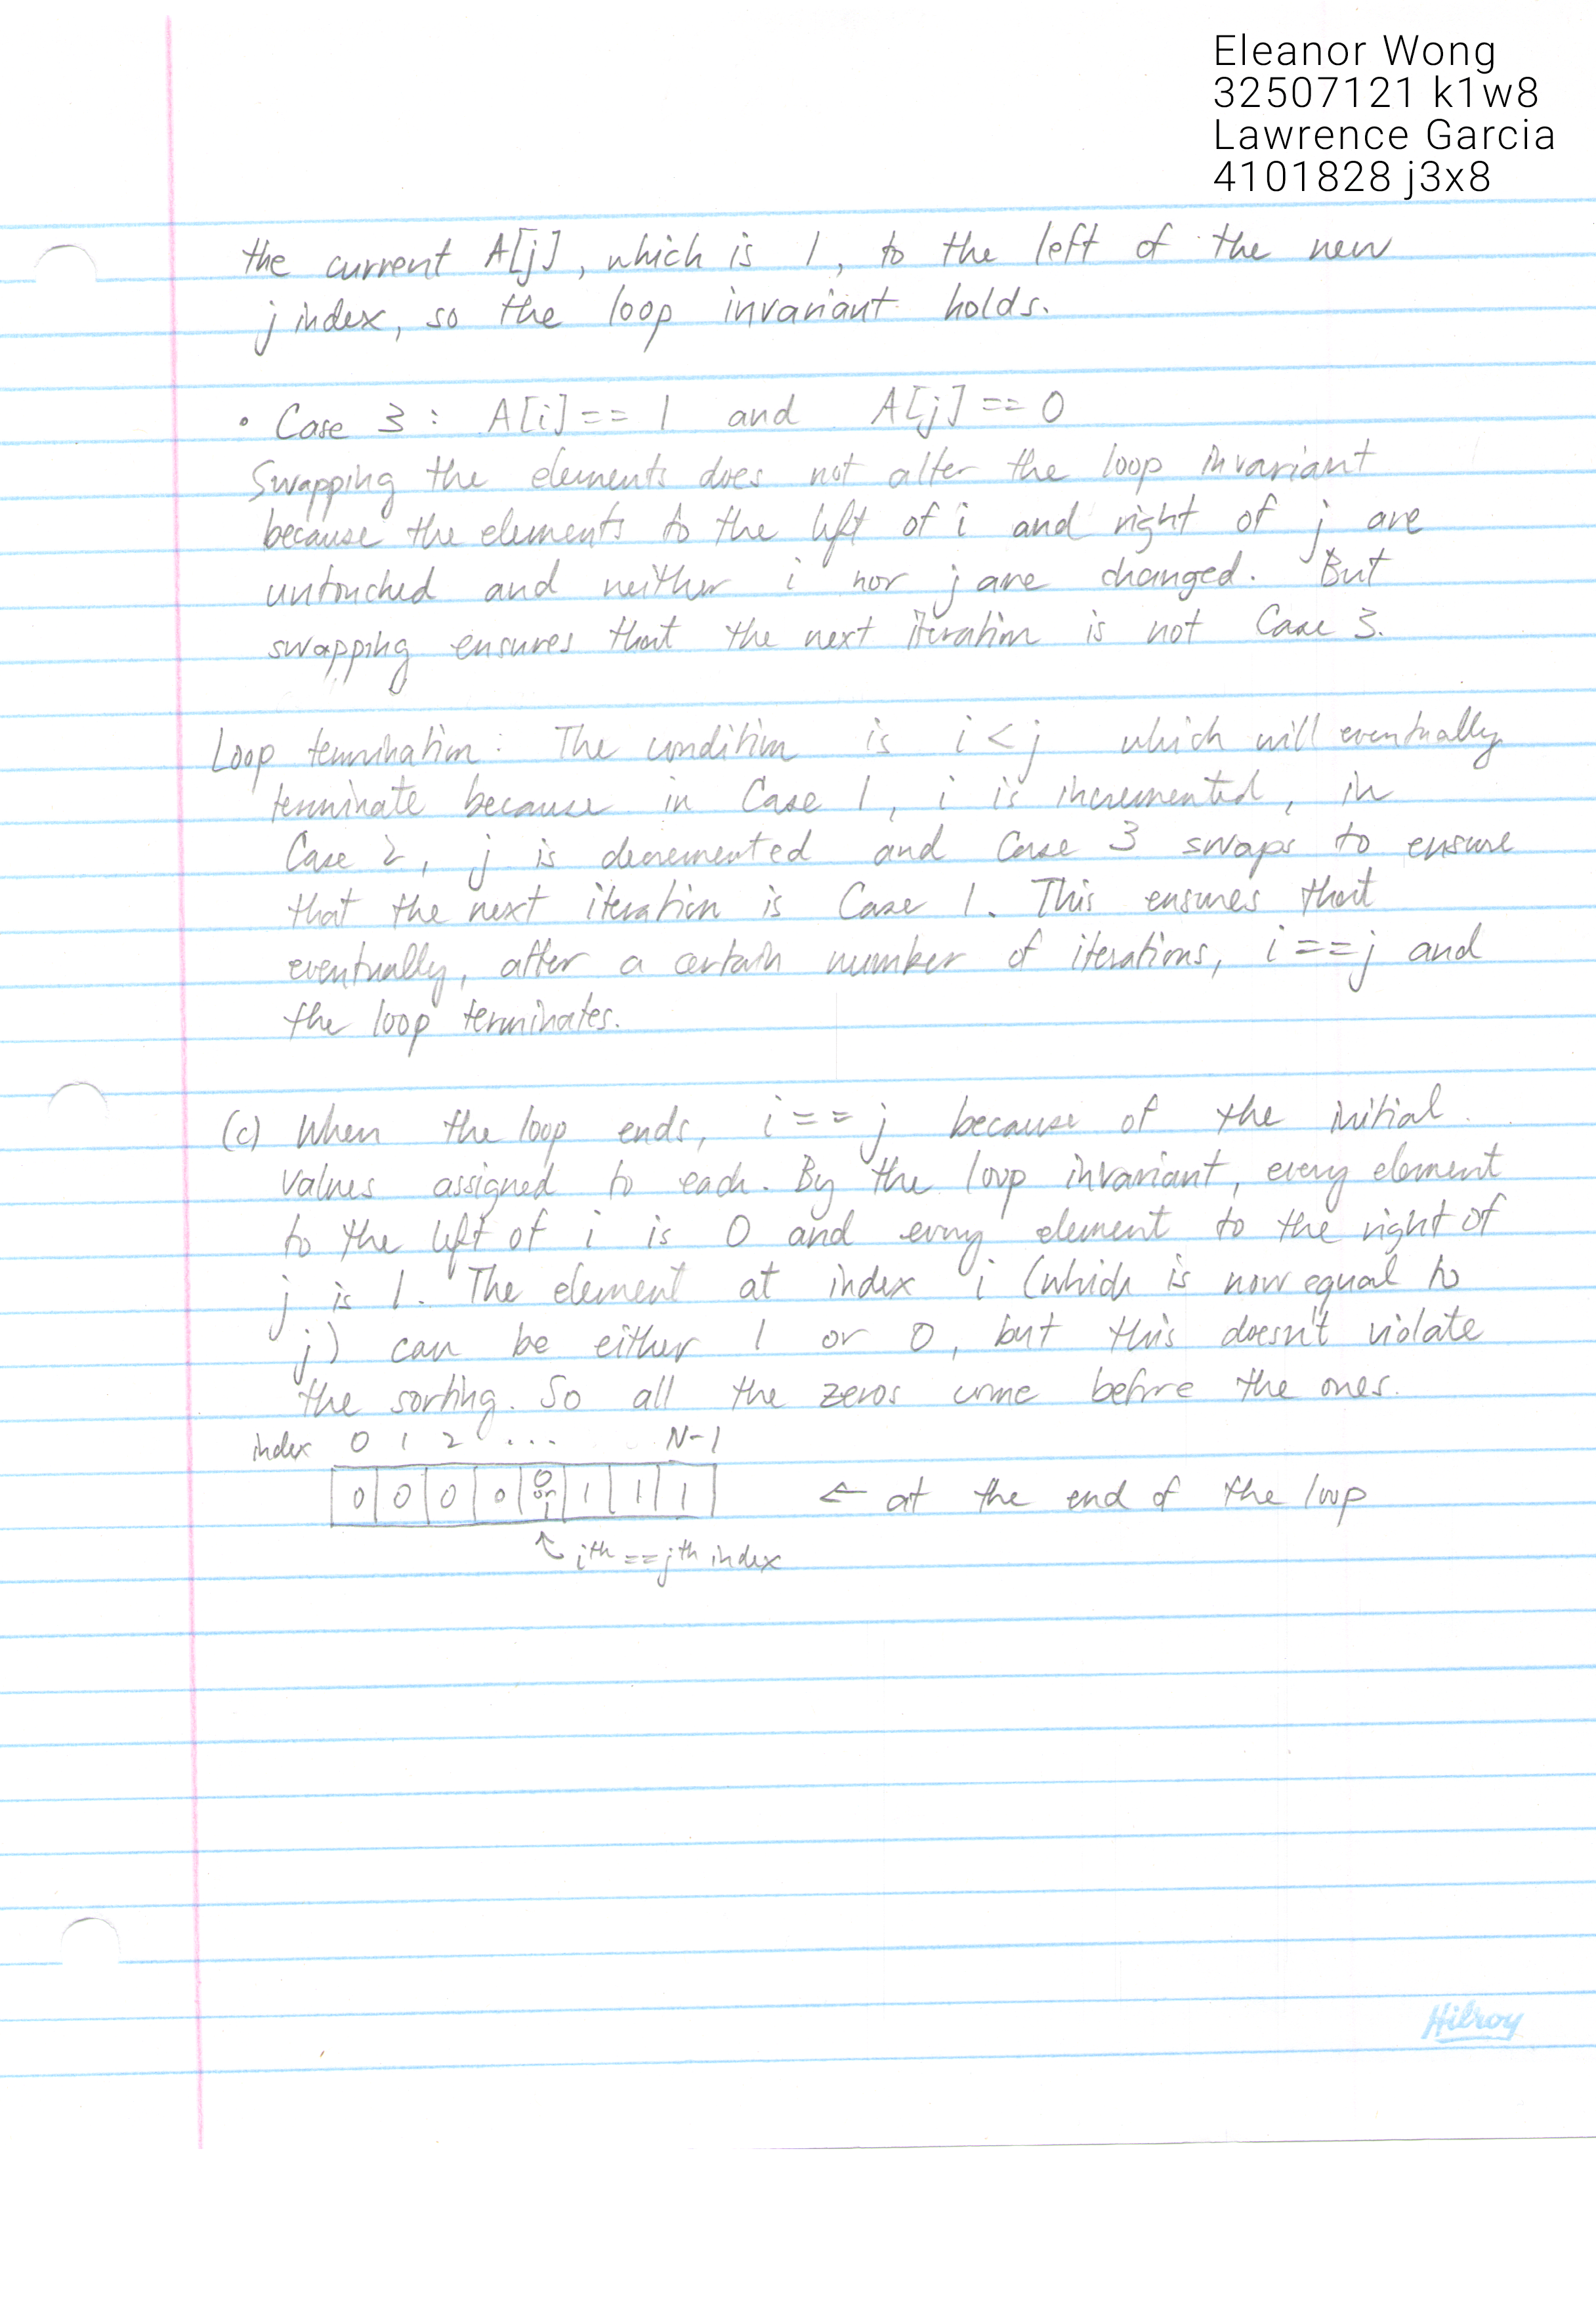 Eleanor Wong
32507121 k1w8
Lawrence Garcia
4101828 j3x8
the current A[j], which is 1, to the left of the new
j index, so the loop invariant holds.
• Case 3 : A[i] == 1 and A[j] == 0
Swapping the elements does not alter the loop invariant
because the elements to the left of i and right of j are
untouched and neither i nor j are changed. But
swapping ensures that the next iteration is not Case 3.
Loop termination: The condition is i < j which will eventually
terminate because in Case 1, i is incremented, in
Case 2, j is decremented and Case 3 swaps to ensure
that the next iteration is Case 1. This ensures that
eventually, after a certain number of iterations, i == j and
the loop terminates.
(c) When the loop ends, i == j because of the initial
values assigned to each. By the loop invariant, every element
to the left of i is 0 and every element to the right of
j is 1. The element at index i (which is now equal to
j) can be either 1 or 0, but this doesn't violate
the sorting. So all the zeros come before the ones.
index 0 1 2 ... N-1
0 0 0 0 0 or 1 1 1 1 ← at the end of the loop
ith == jth index
Hilroy